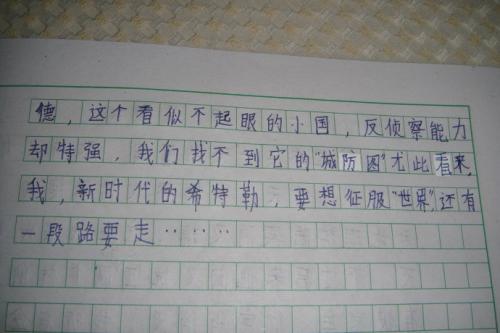 德，这个看似不起眼的小国，反侦察能力
却特强，我们找不到它的“城防图”尤此看来，
我，新时代的希特勒，要想征服“世界”，还有
一段路要走……